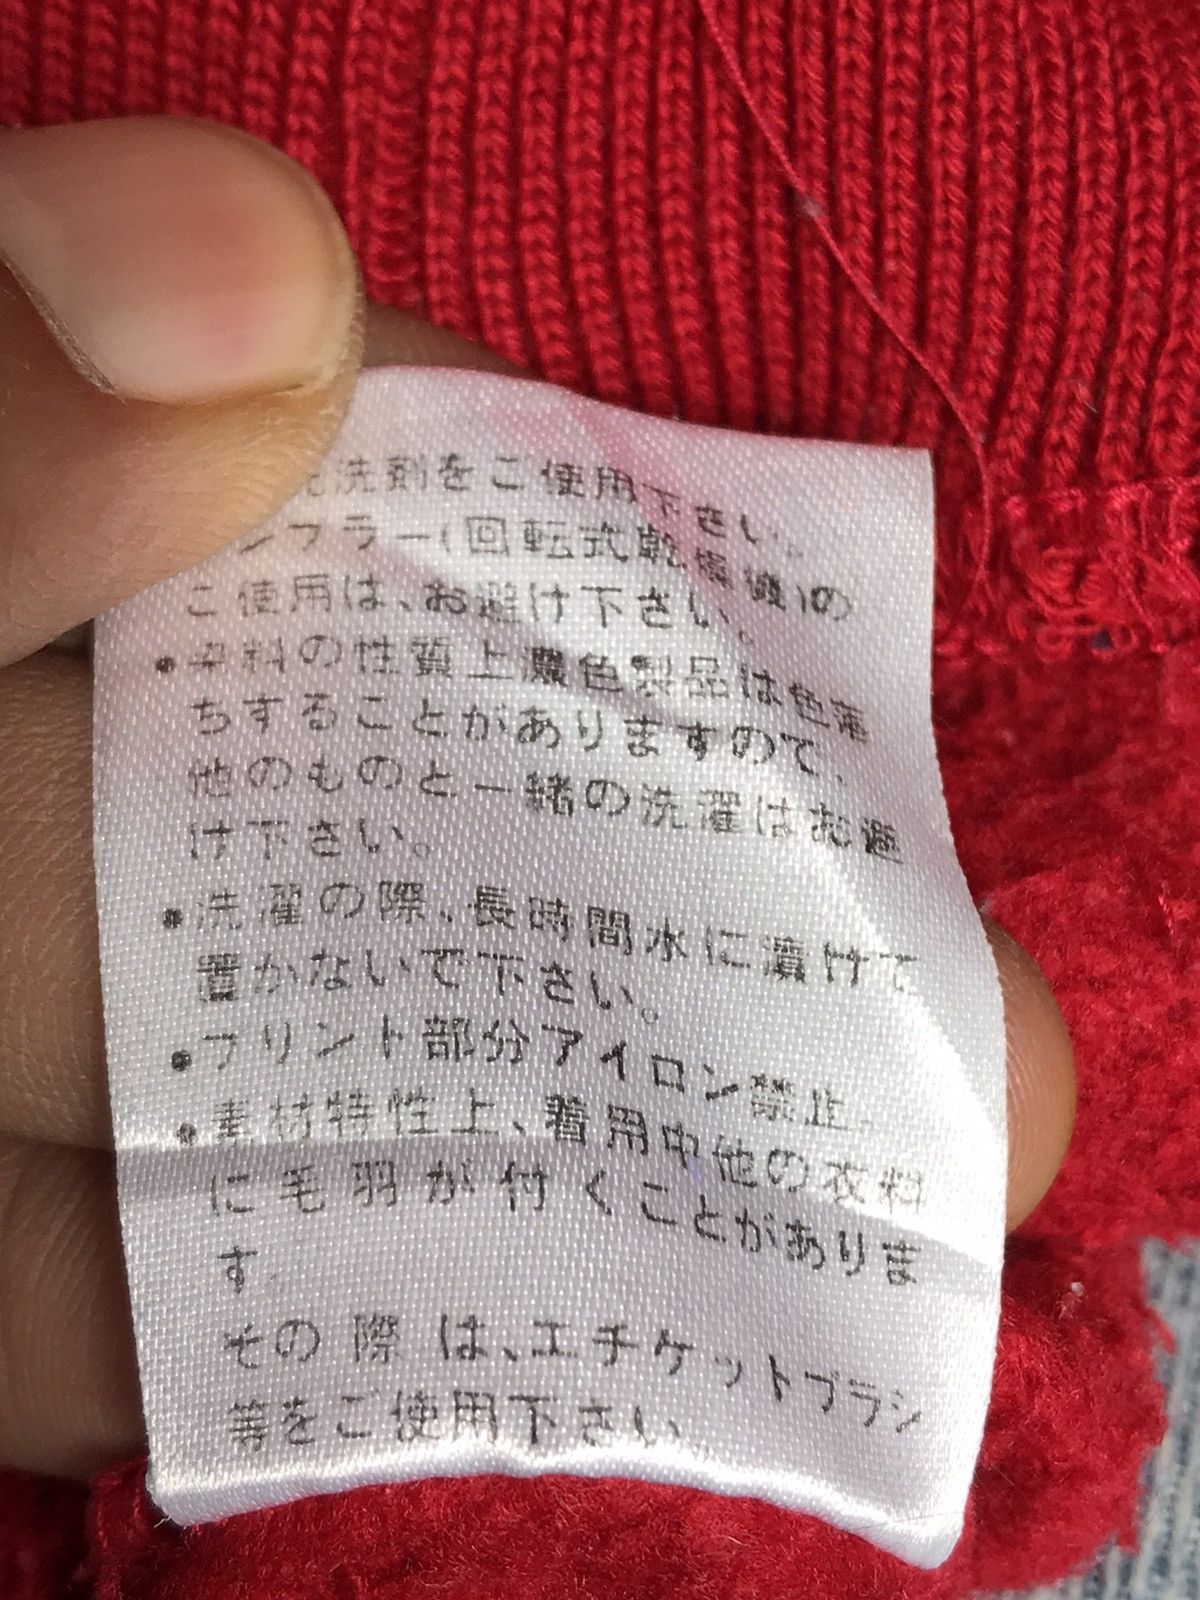 洗剤をご使用下さい。
ンブラー(回転式乾燥機)の
ご使用は、お避け下さい。
•染料の性質上濃色製品は色落
ちすることがありますので、
他のものと一緒の洗濯はお避
け下さい。
•洗濯の際、長時間水に漬けて
置かないで下さい。
•プリント部分アイロン禁止。
•素材特性上、着用中他の衣料
に毛羽が付くことがありま
す
その際は、エチケットブラシ
等をご使用下さい。